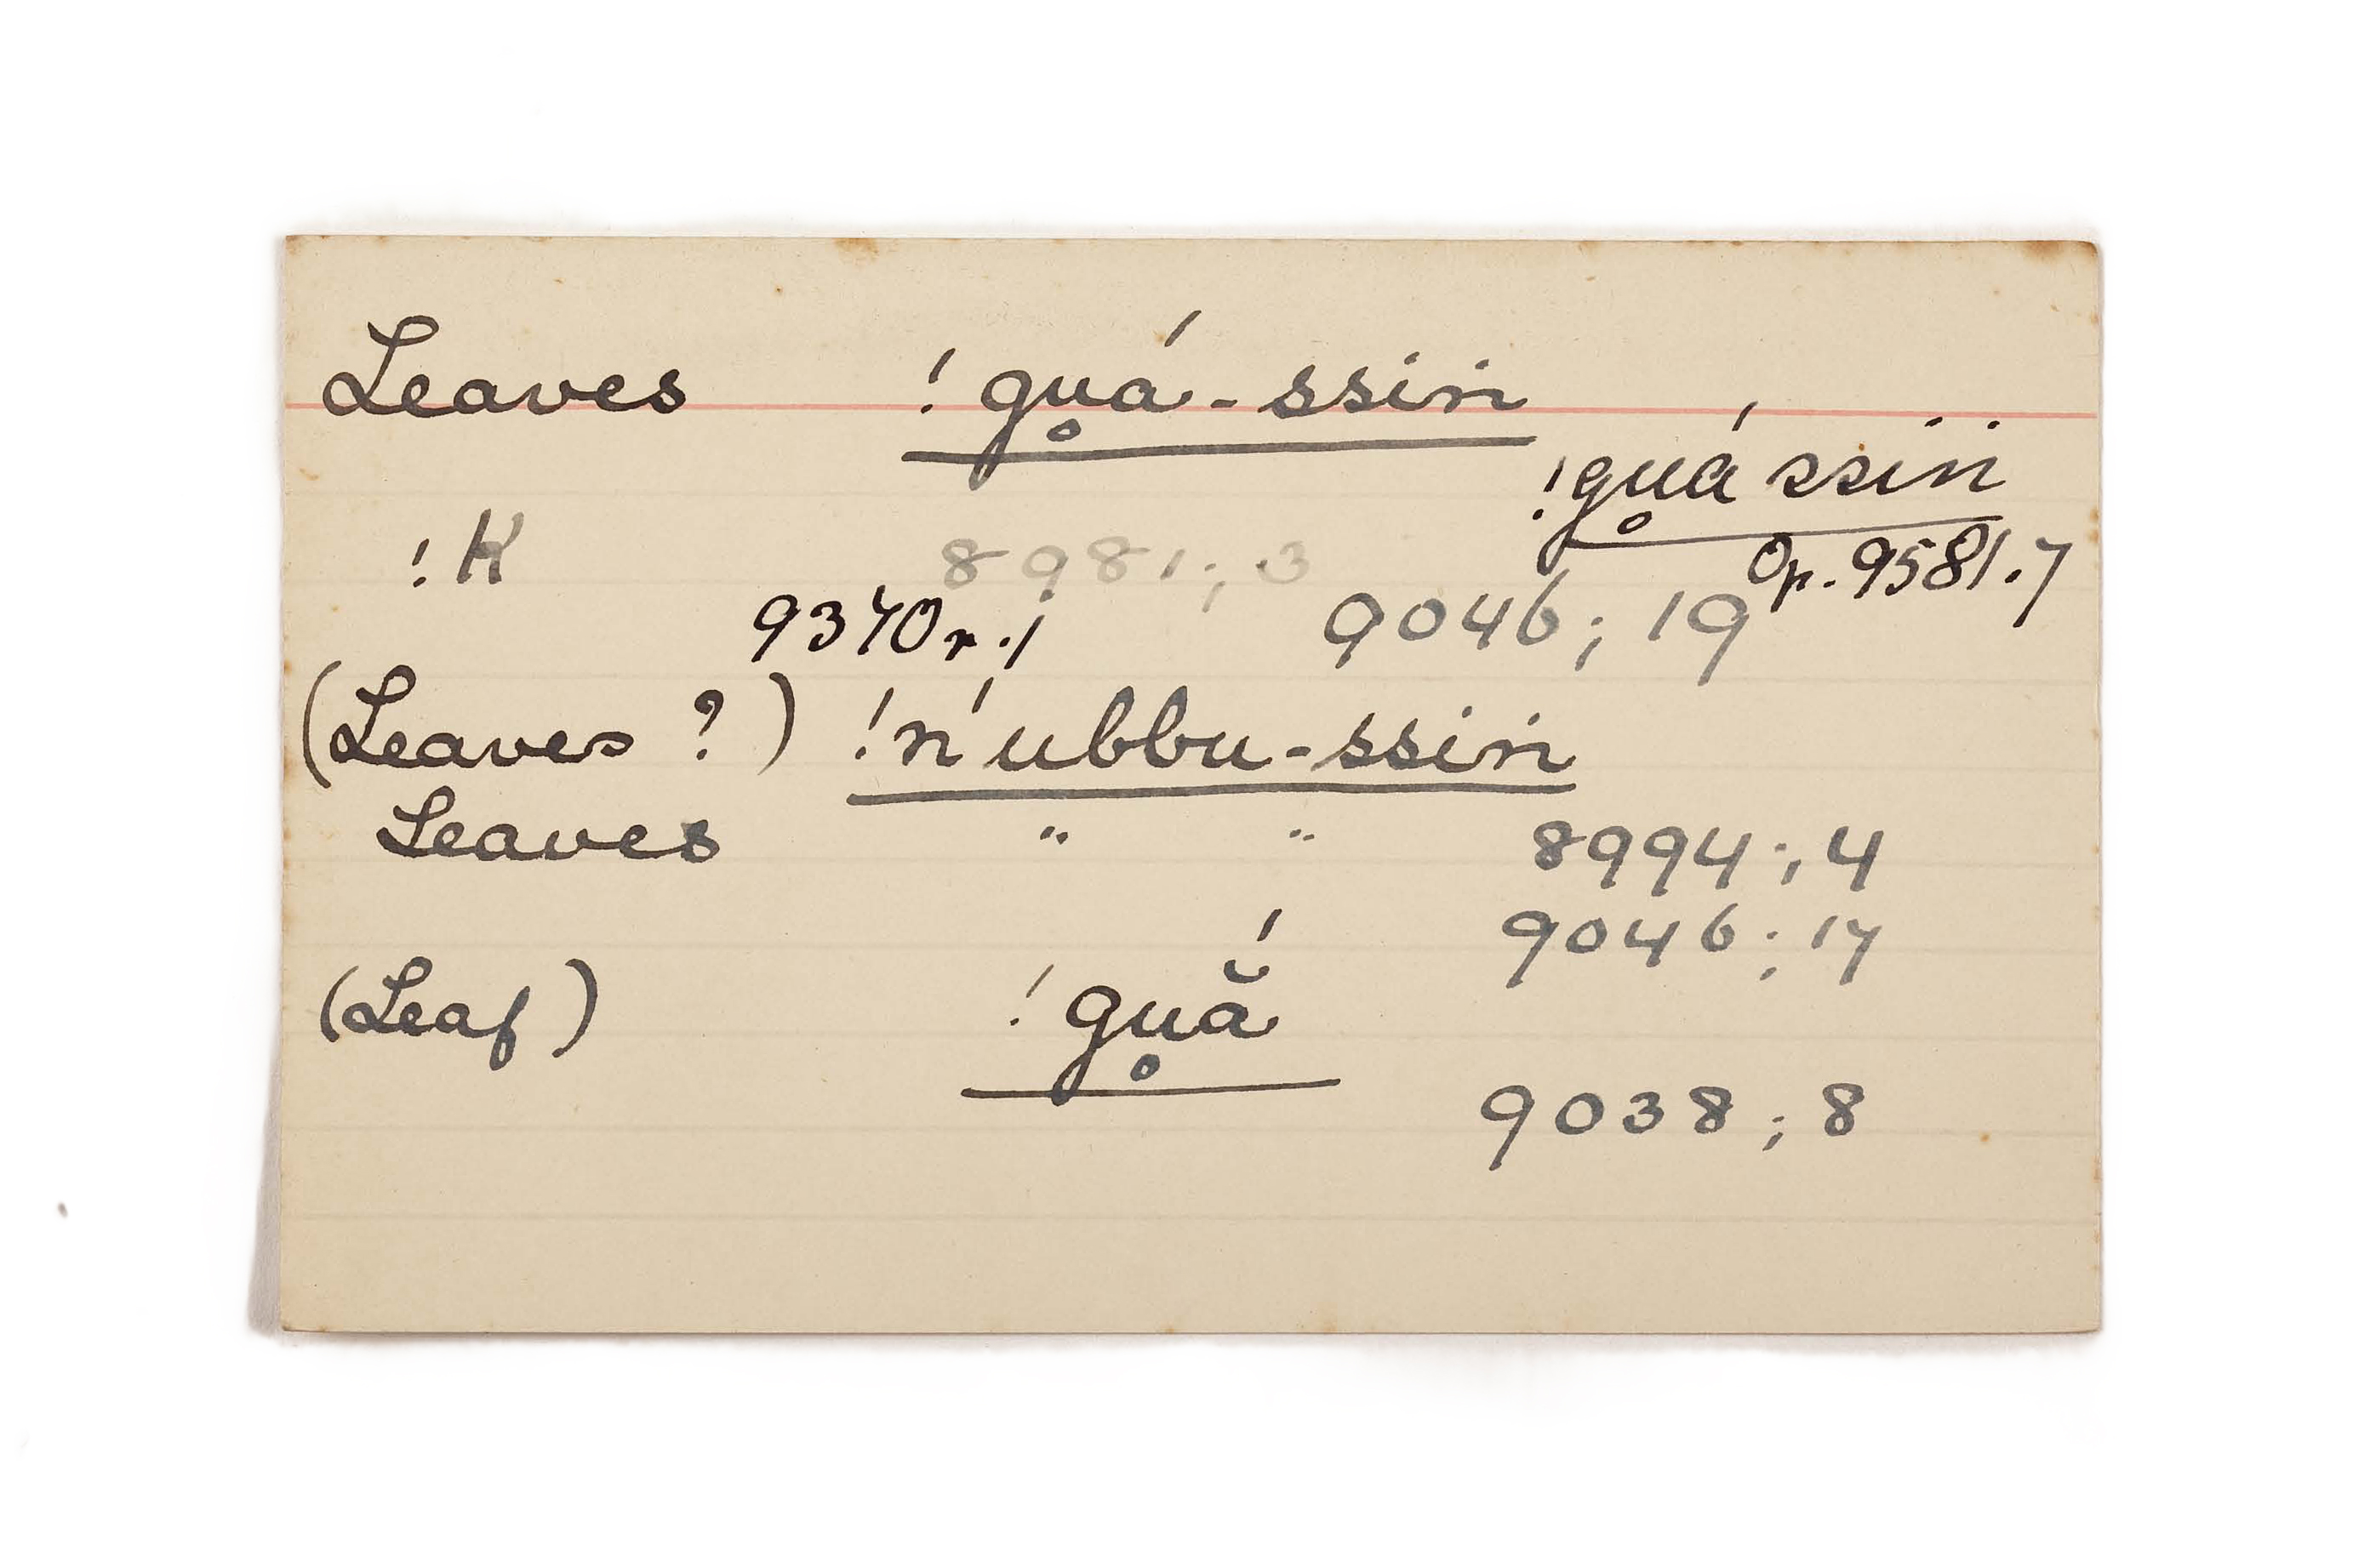 Leaves !gu̥á-ssiṅ
!gu̥á ssiṅ
!K 8981; 3 Op. 9581.7
9370 r.1 9046; 19
(Leaves ?) !n'ubbu-ssiṅ
Leaves " " 8994; 4
9046; 17
(Leaf) !gu̥ắ
9038; 8